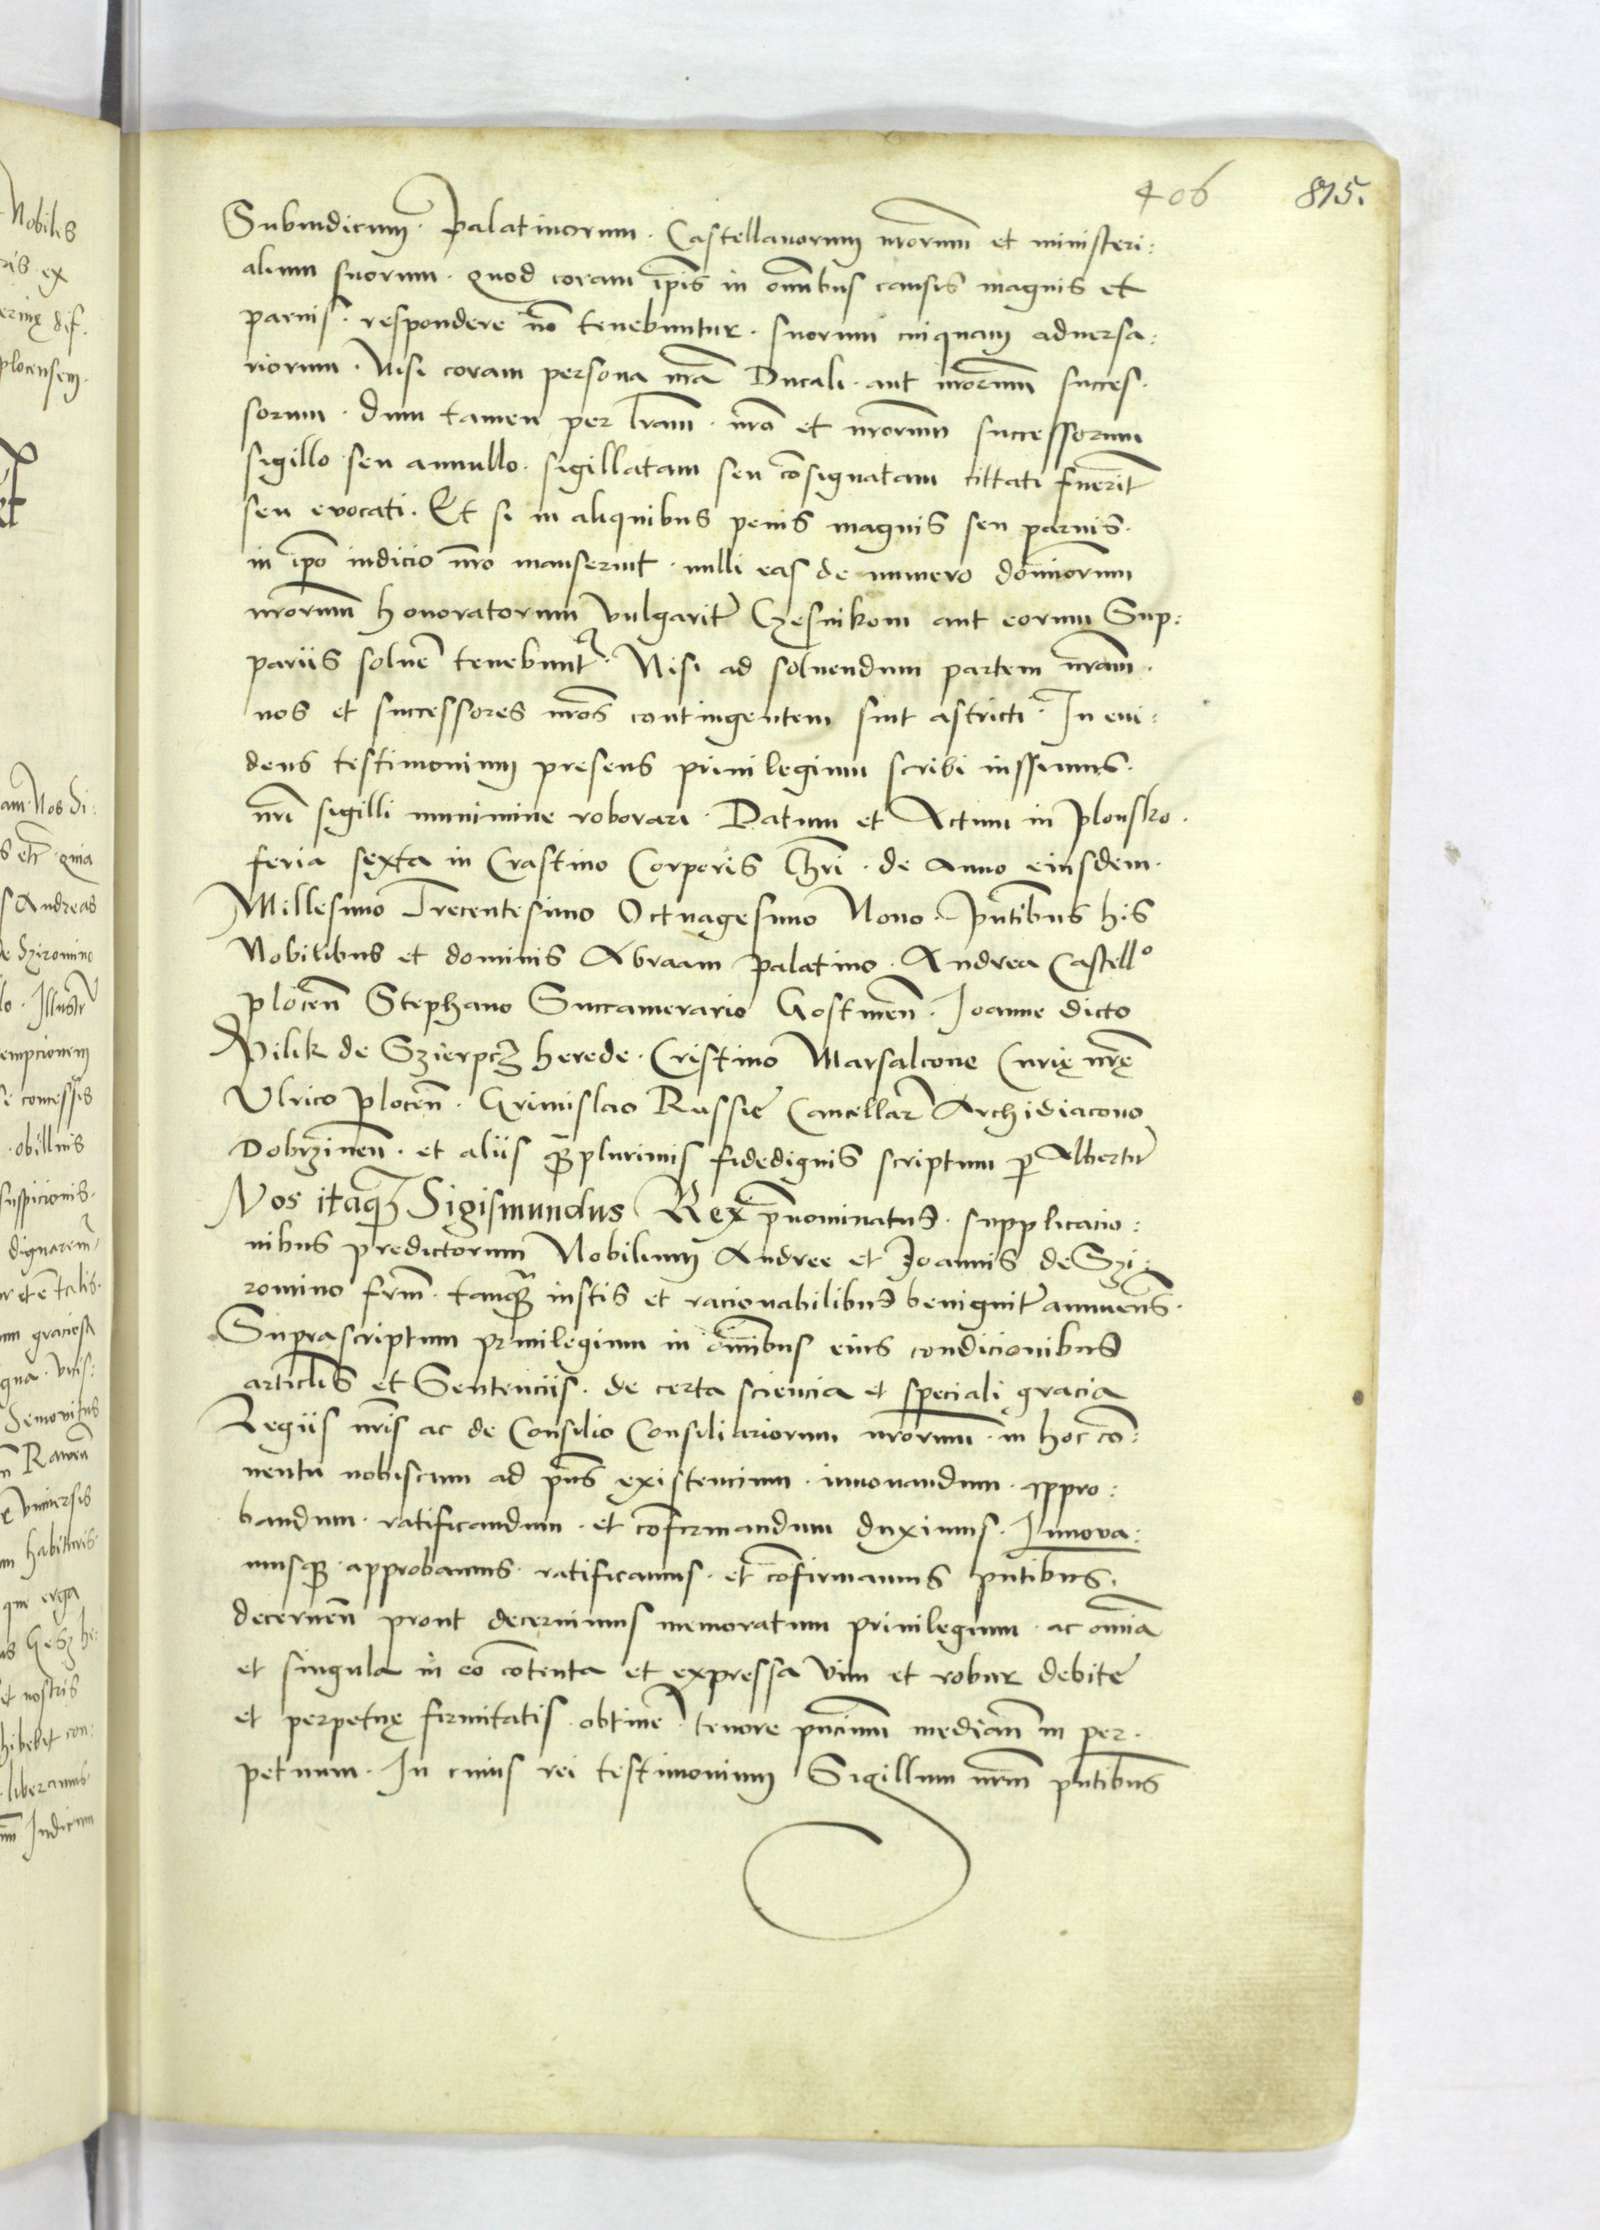 406 815.
Subiudicum · Palatinorum · Castellanorum nrorum et ministeri:
alium suorum · quod coram ipis in omnibus causis magnis et
parvis · respondere no tenebuntur · suorum cuiquam adversa:
riorum · Nisi coram persona nra Ducali · aut nrorum succes·
sorum · dum tamen per lram · nra et nrorum successorum
sigillo seu annullo · sigillatam seu cosignatam cittati fuerit
seu evocati · Et si in aliquibus penis magnis seu parvis ·
in ipo iudicio nro manserint · nulli eas de numero dominorum
nrorum honoratorum vulgarit Czesnikom aut eorum Sup:
pariis solve tenebunt · Nisi ad solvendum partem nram ·
nos et successores nros contingentem sint astricti · In evi:
dens testimonium presens privilegium scribi iussimus ·
nri sigilli munimine roborari · Datum et Actum in Plonsko ·
feria sexta in Crastino Corporis Chri · de Anno eiusdem ·
Millesimo Trecentesimo Octuagesimo Nono · Pntibus his
Nobilibus et dominis Abraam palatino · Andrea Castello
plocen Stephano Succamerario Gostinen · Joanne dicto
Pilik de Szierpcz herede · Cristino Marsalcone Curię nrę
Ulrico plocen · Grimislao Russie Cancellar Archidiacono
Dobrzinen · et aliis qplurimis fidedignis scriptum p Albertu
Nos itaq Sigismundus Rex pnominatus · supplicatio:
nibus predictorum Nobilium Andree et Joannis de Szi:
romino frm · tanq iustis et racionabilibus benignit annuens ·
Suprascriptum privilegium in omnibus eius condicionibus
articlis et Sentenciis · de certa sciencia et speciali gracia
Regiis nris ac de Consilio Consiliariorum nrorum · in hoc co:
nentu nobiscum ad pns existencium · innovandum · appro:
bandum · ratificandum · et cofirmandum duximus · Innova:
musq · approbamus · ratificamus · et cofirmamus pntibus ·
decernen prout decernimus memoratum privilegium · ac omnia
et singula in eo cotenta et expressa vim et robur debite
et perpetuę firmitatis obtine · tenore pncium median in per·
petuum · In cuius rei testimonium Sigillum nrm pntibus